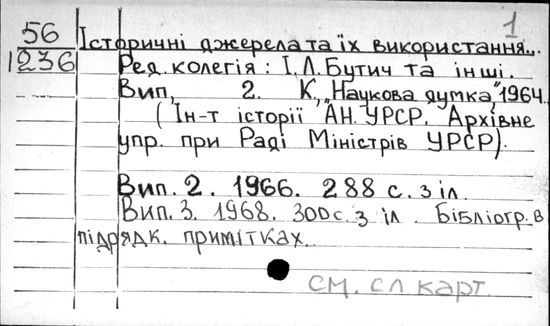 1
56
1236
Історичні джерела та їх використання...
Ред. колегія: І.Л. Бутич та інші.
Вип, 2. К, „Наукова думка", 1964.
(Ін-т історії АН. УРСР. Архівне
упр. при Раді Міністрів УРСР).
Вип. 2. 1966. 288 с. з іл.
Вип. 3. 1968. 300 с. з іл. Бібліогр. в
підрядк. примітках.
см. сл карт